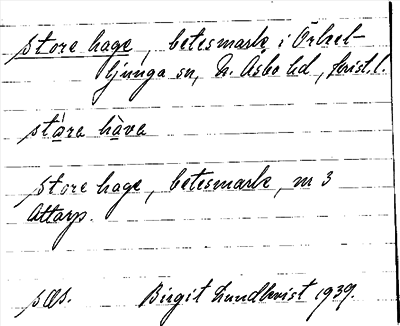 store hage, betesmark i Örkel-
ljunga sn, N. Åsbo hd, Krist. l.
stàra hàva
store hage, betesmark, nr 3
Attarp.
sæs. Birgit Lundkvist 1939.